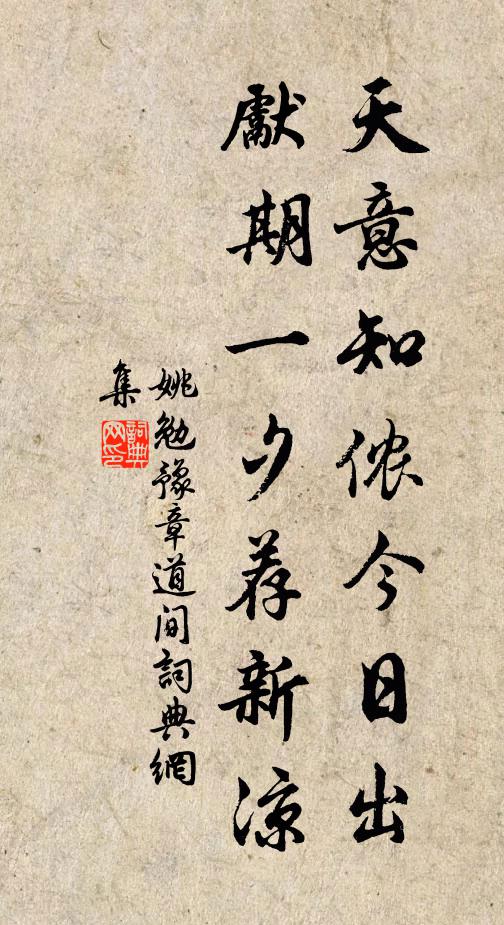 天意知侬今日出
献期一夕荐新凉
姚勉豫章道间詞典網
集
詞典网印